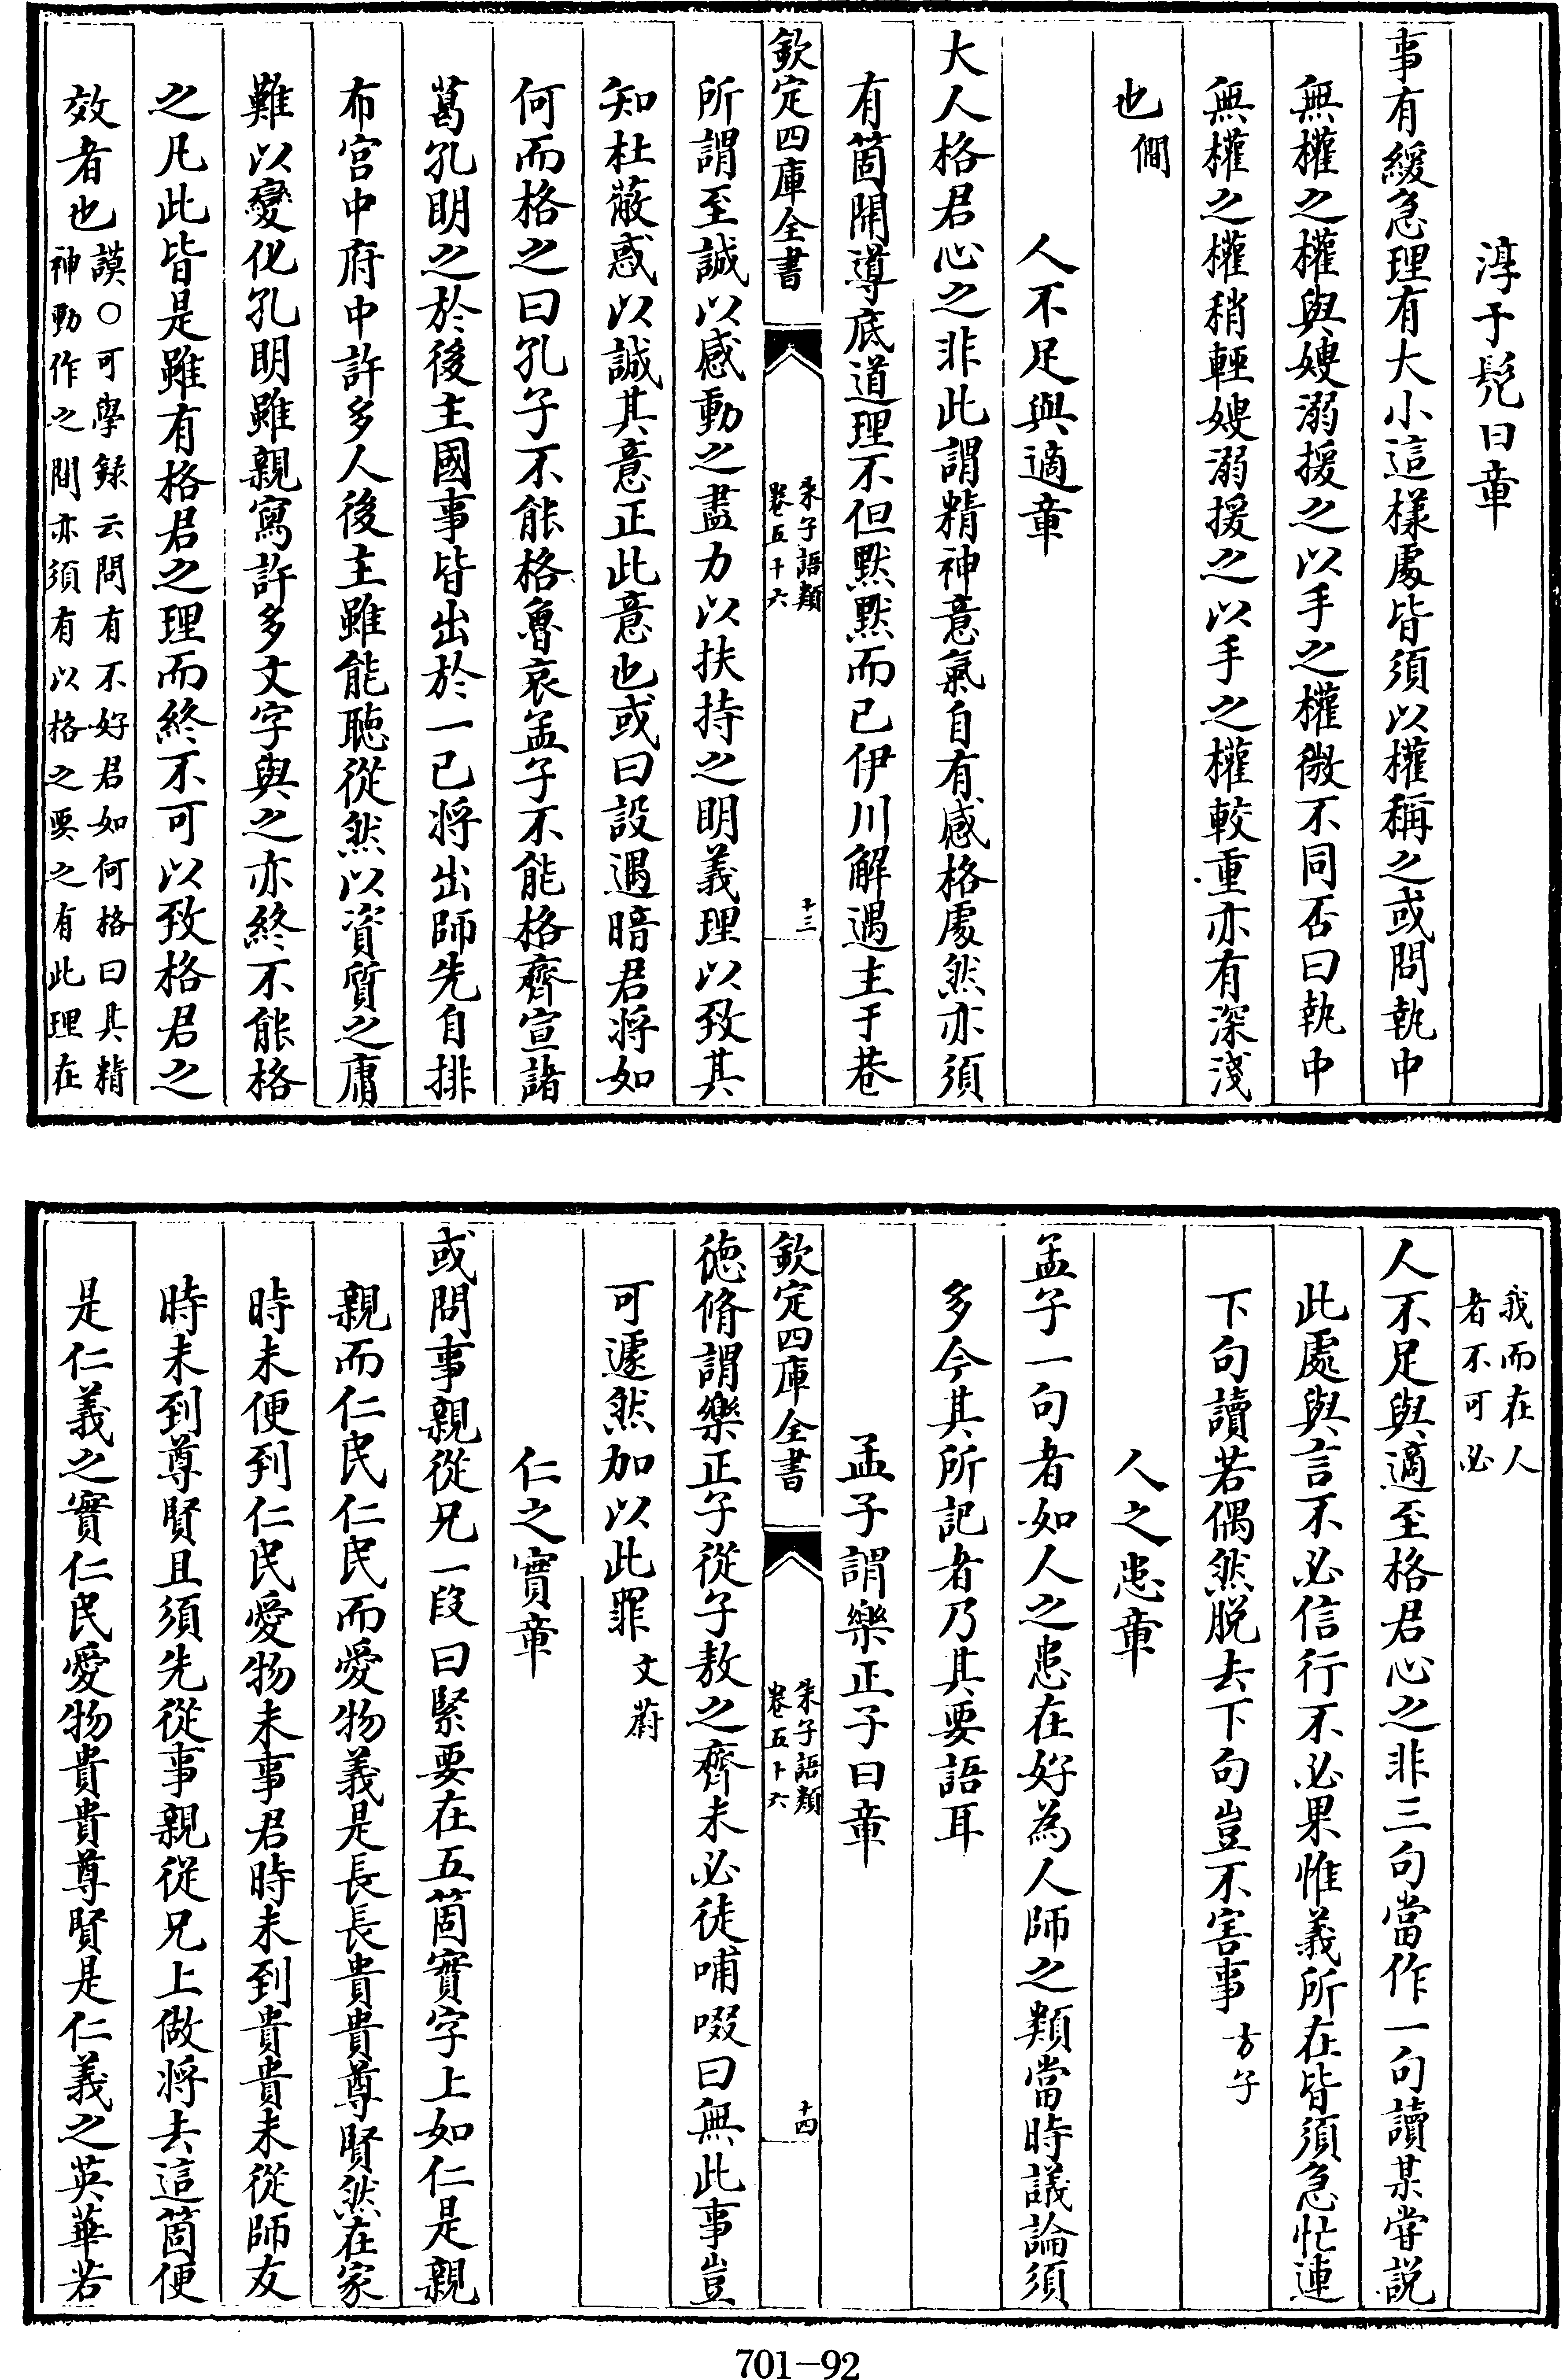 淳于髠曰章
事有緩急理有大小這樣處皆須以權稱之或問執中
無權之權與嫂溺援之以手之權微不同否曰執中
無權之權稍輕嫂溺援之以手之權較重亦有深淺
也僩
人不足與適章
大人格君心之非此謂精神意氣自有感格處然亦須
有箇開導底道理不但黙黙而已伊川解遇主于巷
欽定四庫全書
朱子語類
卷五十六
十三
所謂至誠以感動之盡力以扶持之明義理以致其
知杜蔽惑以誠其意正此意也或曰設遇暗君將如
何而格之曰孔子不能格魯哀孟子不能格齊宣諸
葛孔明之於後主國事皆出於一已將出師先自排
布宫中府中許多人後主雖能聽從然以資質之庸
難以變化孔明雖親寫許多文字與之亦終不能格
之凡此皆是雖有格君之理而終不可以致格君之
效者也謨○可學録云問有不好君如何格曰其精
神動作之間亦須有以格之要之有此理在
我而在人
者不可必
人不足與適至格君心之非三句當作一句讀某嘗説
此處與言不必信行不必果惟義所在皆須急忙連
下句讀若偶然脱去下句豈不害事方子
人之患章
孟子一句者如人之患在好為人師之類當時議論須
多今其所記者乃其要語耳
孟子謂樂正子曰章
欽定四庫全書
朱子語類
卷五十六
十四
德脩謂樂正子從子敖之齊未必徒哺啜曰無此事豈
可遽然加以此罪文蔚
仁之實章
或問事親從兄一段曰緊要在五箇實字上如仁是親
親而仁民仁民而愛物義是長長貴貴尊賢然在家
時未便到仁民愛物未事君時未到貴貴未從師友
時未到尊賢且須先從事親從兄上做將去這箇便
是仁義之實仁民愛物貴貴尊賢是仁義之英華若
701-92